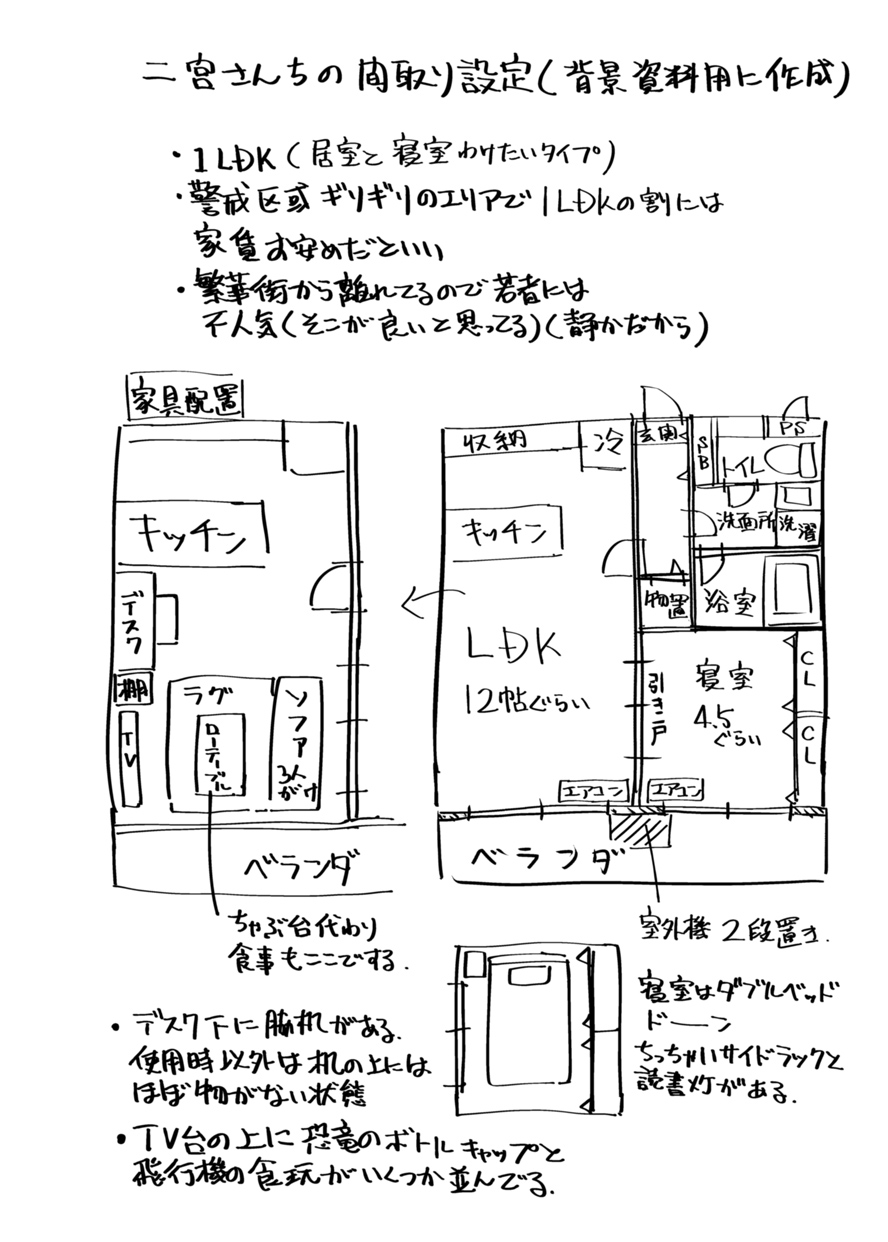 二宮さんちの間取り設定(背景資料用に作成)
・1LDK(居室と寝室わけたいタイプ)
・警戒区域ギリギリのエリアで1LDKの割には
家賃お安めだといい
・繁華街から離れてるので若者には
不人気(そこが良いと思ってる)(静かだから)
家具配置
キッチン
デスク
棚
TV
ラグ
ローテーブル
ソファ
3人がけ
ベランダ
ちゃぶ台代わり
食事もここでする.
収納
冷
玄関
SB
PS
トイレ
キッチン
洗面所
洗濯
物置
浴室
LDK
12帖ぐらい
引き戸
寝室
4.5
ぐらい
CL
CL
エアコン
エアコン
ベランダ
室外機 2段置き.
寝室はダブルベッド
ドーン
ちっちゃいサイドラックと
読書灯がある.
・デスク下に脇机がある.
使用時以外は机の上には
ほぼ物がない状態
・TV台の上に恐竜のボトルキャップと
飛行機の食玩がいくつか並んでる.